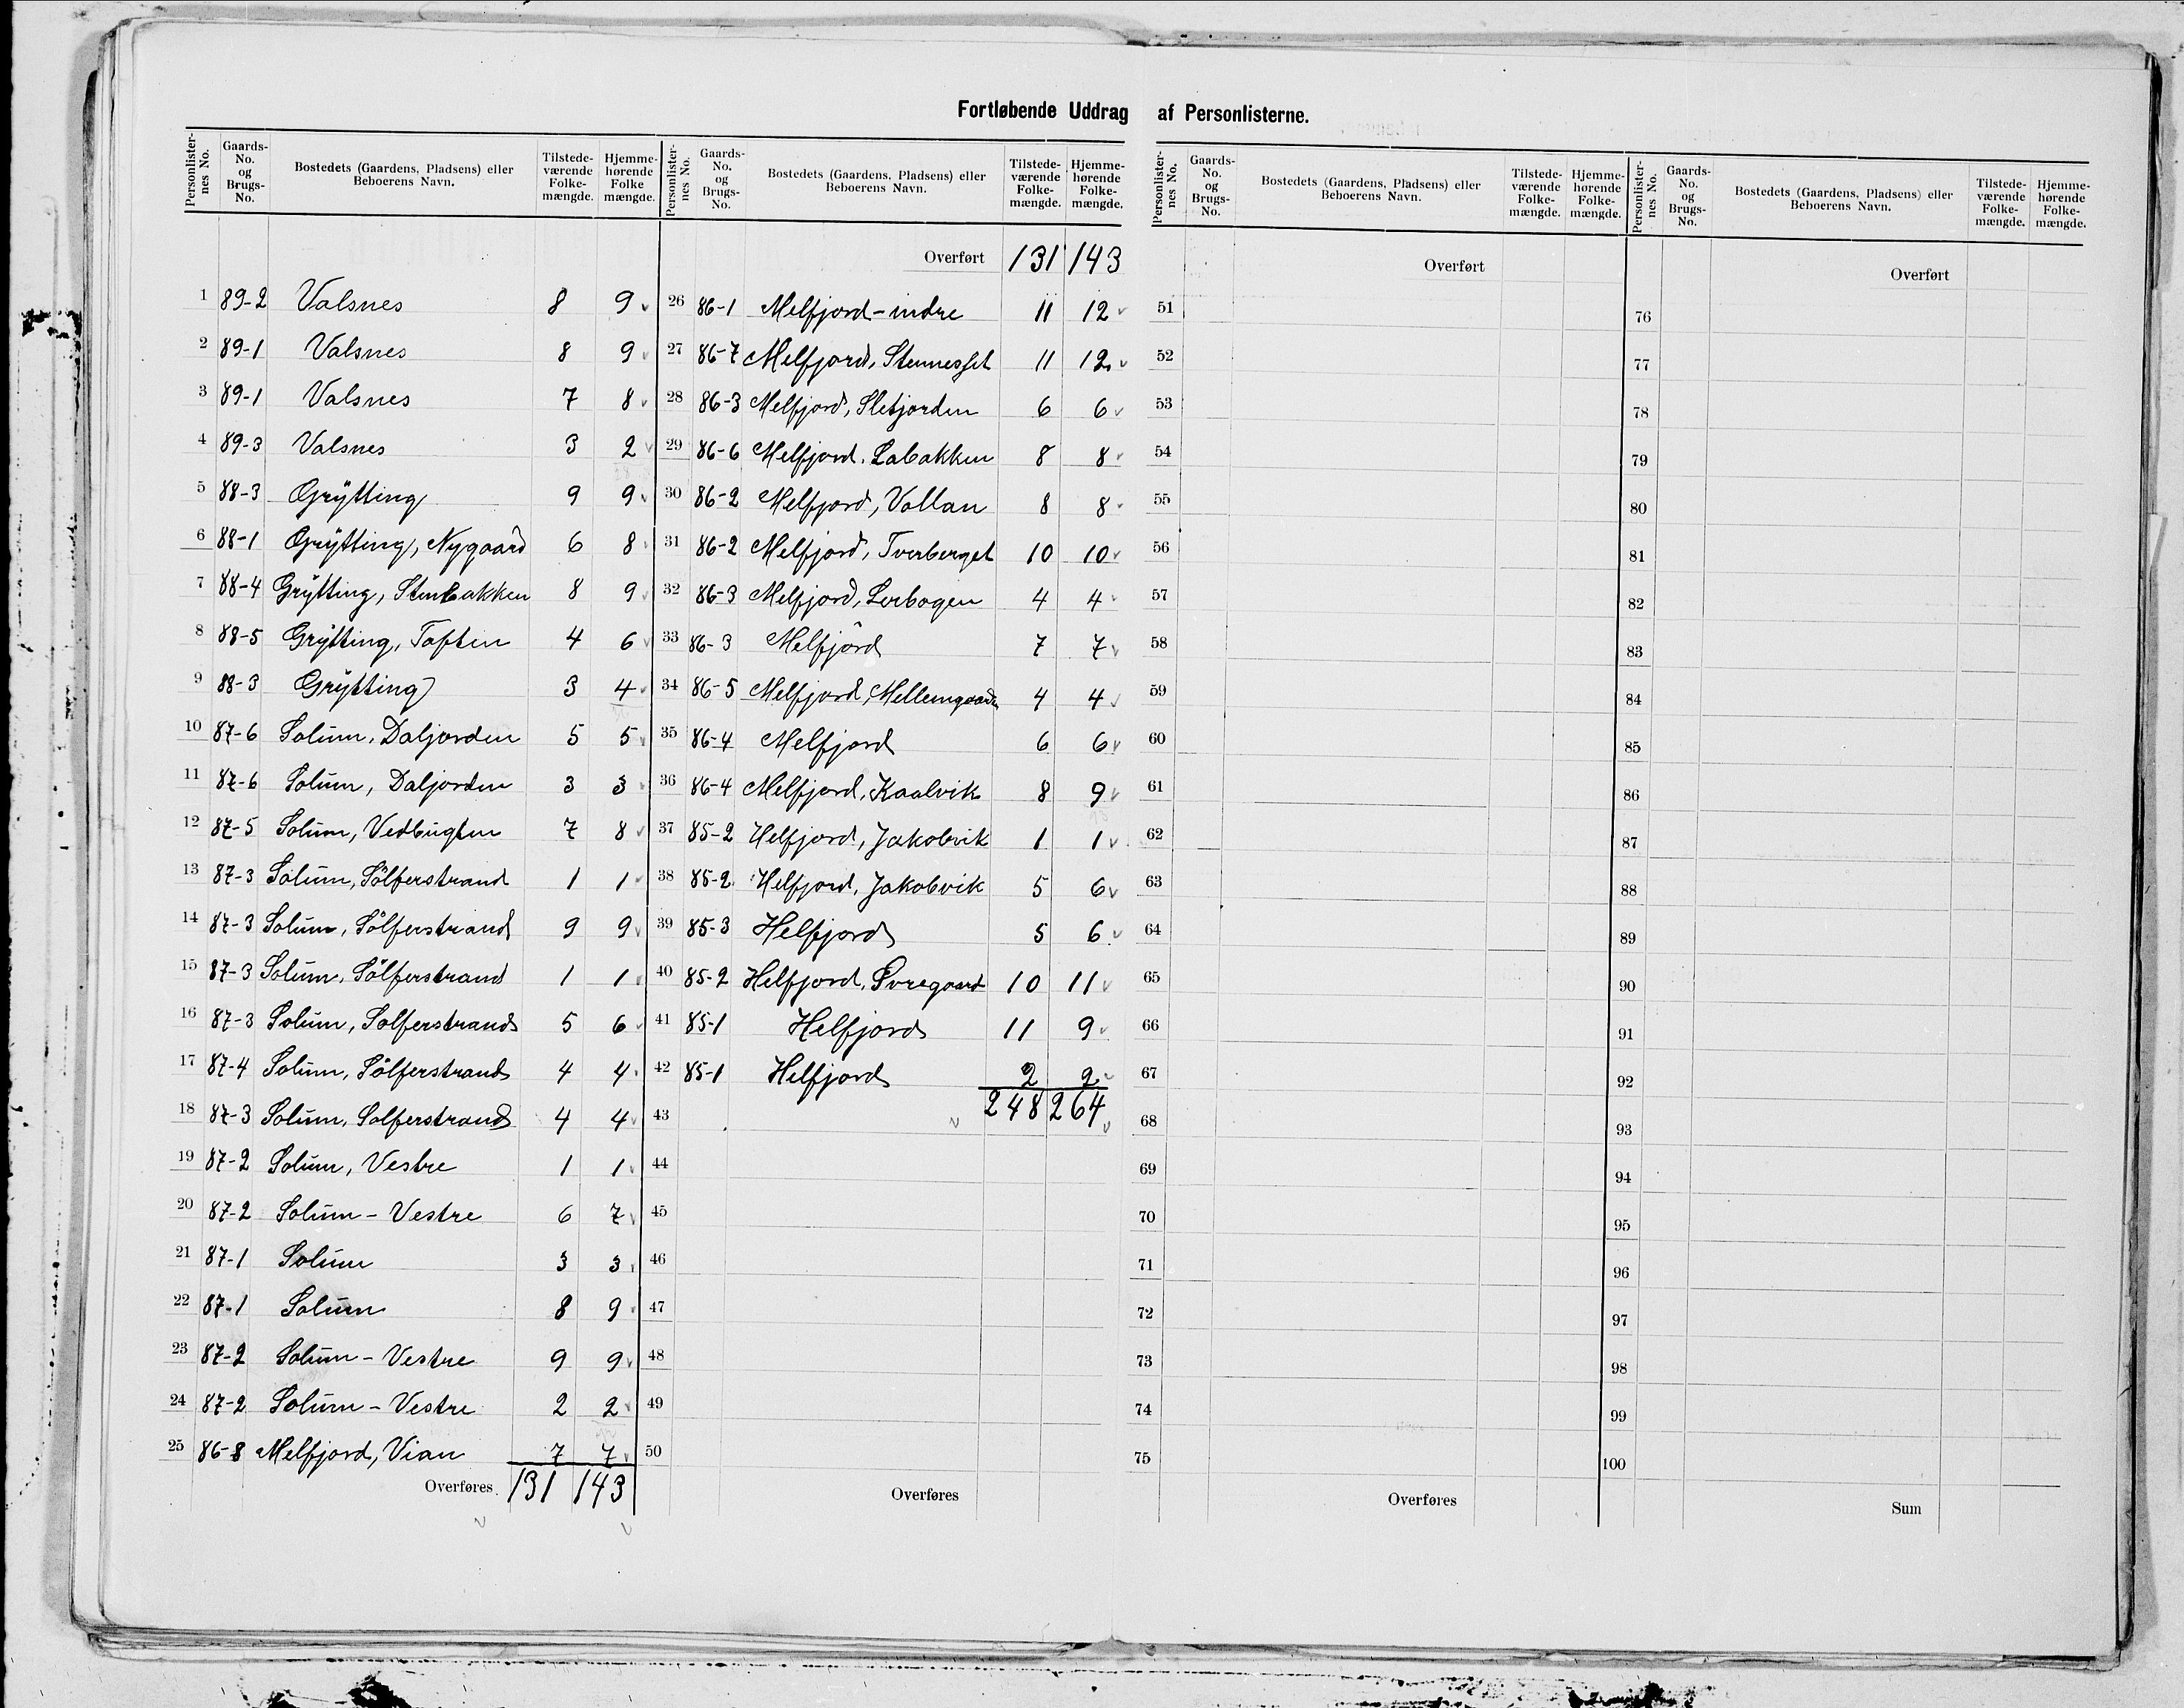 Fortløbende Uddrag af Personlisterne.
Personlisternes No. Gaards-No. og Brugs-No. Bostedets (Gaardens, Pladsens) eller Beboerens Navn. Tilstede-værende Folke-mængde. Hjemme-hørende Folke mængde.
1 89-2 Valsnes 8 9
2 89-1 Valsnes 8 9
3 89-1 Valsnes 7 8
4 89-3 Valsnes 3 2
5 88-3 Grytting 9 9
6 88-1 Grytting, Nygaard 6 8
7 88-4 Grytting, Stenbakken 8 9
8 88-5 Grytting, Toften 4 6
9 88-3 Grytting 3 4
10 87-6 Solum, Daljorden 5 5
11 87-6 Solum, Daljorden 3 3
12 87-5 Solum, Vedbugten 7 8
13 87-3 Solum, Sölferstrand 1 1
14 87-3 Solum, Sölferstrand 9 9
15 87-3 Solum, Sölferstrand 1 1
16 87-3 Solum, Solferstrand 5 6
17 87-4 Solum, Sölferstrand 4 4
18 87-3 Solum, Solferstrand 4 4
19 87-2 Solum, Vestre 1 1
20 87-2 Solum - Vestre 6 7
21 87-1 Solum 3 3
22 87-1 Solum 8 9
23 87-2 Solum - Vestre 9 9
24 87-2 Solum - Vestre 2 2
25 86-8 Melfjord, Vian 7 7
Overføres. 131 143
Personlister-nes No. Gaards-No. og Brugs-No. Bostedets (Gaardens, Pladsens) eller Beboerens Navn. Tilstede-værende Folke-mængde. Hjemme-hørende Folke-mængde.
Overført 131 143
26 86-1 Melfjord-indre 11 12
27 86-7 Melfjord, 11 12
28 86-3 Melfjord, Sletjorden 6 6
29 86-6 Melfjord. Labakken 8 8
30 86-2 Melfjord, Vollan 8 8
31 86-2 Melfjord, Tverberget 10 10
32 86-3 Melfjord, Lerbogen 4 4
33 86-3 Melfjord 7 7
34 86-5 Melfjord, Mellemgaarden 4 4
35 86-4 Melfjord 6 6
36 86-4 Melfjord, Kaalvik 8 9
37 85-2 Helfjord, Jakobvik 1 1
38 85-2 Helfjord, Jakobvik 5 6
39 85-3 Helfjord 5 6
40 85-2 Helfjord, Øvregaard 10 11
41 85-1 Helfjord 11 9
42 85-1 Helfjord 2 2
43 248 264
44
45
46
47
48
49
50
Overføres
Personlister-nes No. Gaards-No. og Brugs-No. Bostedets (Gaardens, Pladsens) eller Beboerens Navn. Tilstede-værende Folke-mængde. Hjemme-hørende Folke-mængde.
Overført
51
52
53
54
55
56
57
58
59
60
61
62
63
64
65
66
67
68
69
70
71
72
73
74
75
Overføres
Personlister-nes No. Gaards-No. og Brugs-No. Bostedets (Gaardens, Pladsens) eller Beboerens Navn. Tilstede-værende Folke-mængde. Hjemme-hørende Folke-mængde.
Overført
76
77
78
79
80
81
82
83
84
85
86
87
88
89
90
91
92
93
94
95
96
97
98
99
100
Sum